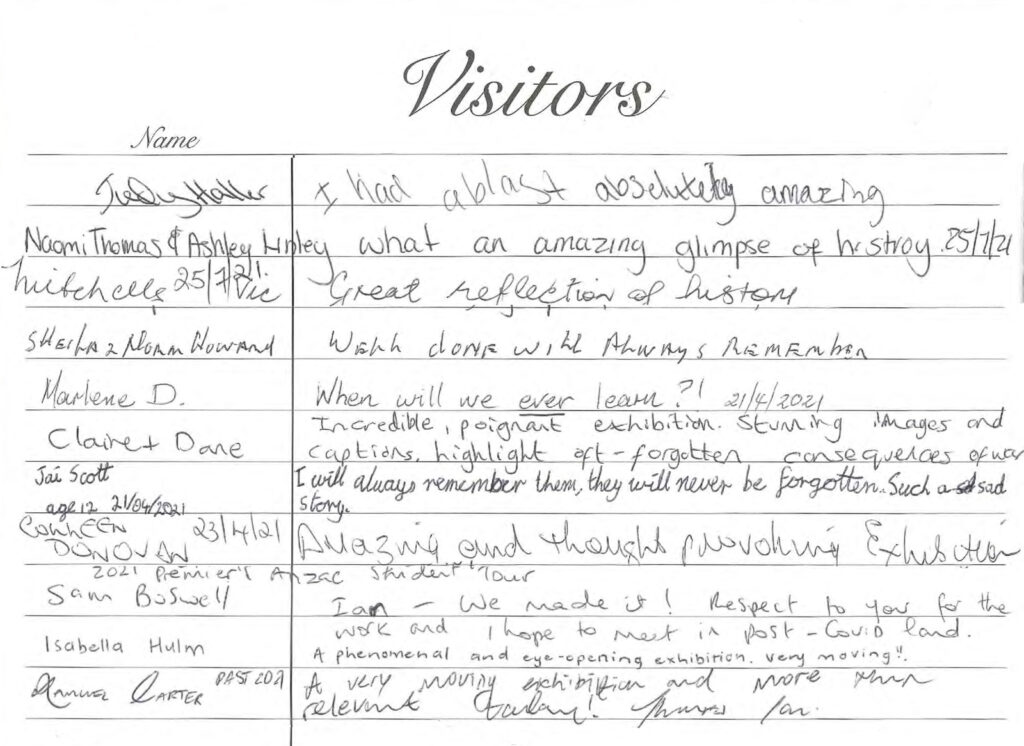 Visitors
Name
I had a blast absolutely amazing
Naomi Thomas & Ashley what an amazing glimpse of histroy. 25/7/21
Mitchells 25/7/21. Vic Great reflection of history
SHEILA & NORM HOWARD WELL DONE WILL ALWAYS REMEMBER
Marlene D. When will we ever learn?! 21/4/2021
Claire + Dane Incredible, poignant exhibition. Stunning images and
captions, highlight oft-forgotten consequences of war
Jai Scott I will always remember them, they will never be forgotten. Such a sad
age 12 21/04/2021 story.
23/4/21 Amazing and thought provoking Exhibition
DONOVAN
2021 Premier's Anzac Student Tour
Sam Boswell Ian - We made it! Respect to you for the
work and I hope to meet in post-Covid land.
Isabella Hulm A phenomenal and eye-opening exhibition. Very moving!!
CARTER PAST 2021 A very moving exhibition and more than
relevant today! Ian.